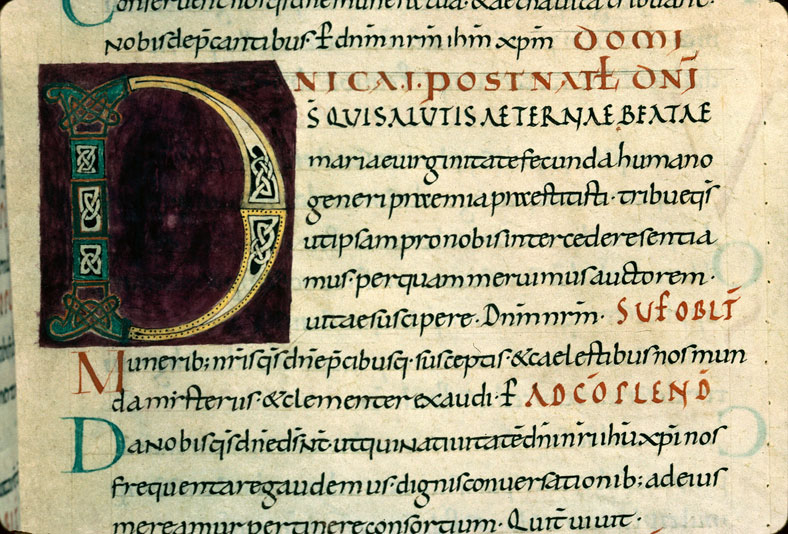 Conservent nos qs dne munera tua. & aeterna uita tribuant.
nobis dep̄cantibus ꝑ dn̄m nr̄m ih̄m xp̄m DOMI
NICA·I·POST NATŁ DN̄I
D S̄ QUI SALUTIS AETERNAE BEATAE
mariae uirginitate fecunda humano
generi praemia praestitisti· tribue qs̄
ut ipsam pro nobis intercedere sentia
mus· per quam meruimus auctorem·
uitae suscipere· Dn̄m nr̄m· SUP OBLT̄
Munerib; nr̄is qs̄ dn̄e p̄cibusq· susceptis & caelestibus nos mun
da misteriis· & clementer exaudi· ꝑ AD CŌPLEND̄
Da nobis qs̄ dn̄e ds̄ nr̄· ut qui natiuitatē dn̄i nr̄i ih̄u xp̄i nos
frequentare gaudemus· dignis conuersationib; ad eius
mereamur pertinere consortium· Qui t̄ uiuit·